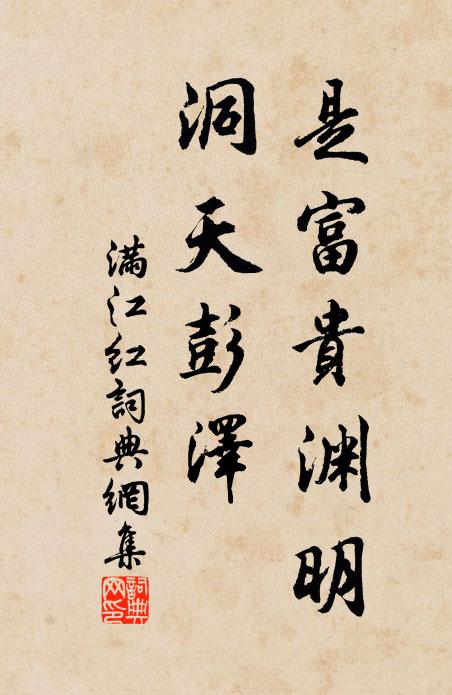 是富貴渊明
洞天彭澤
滿江红詞典網集
詞典
网印